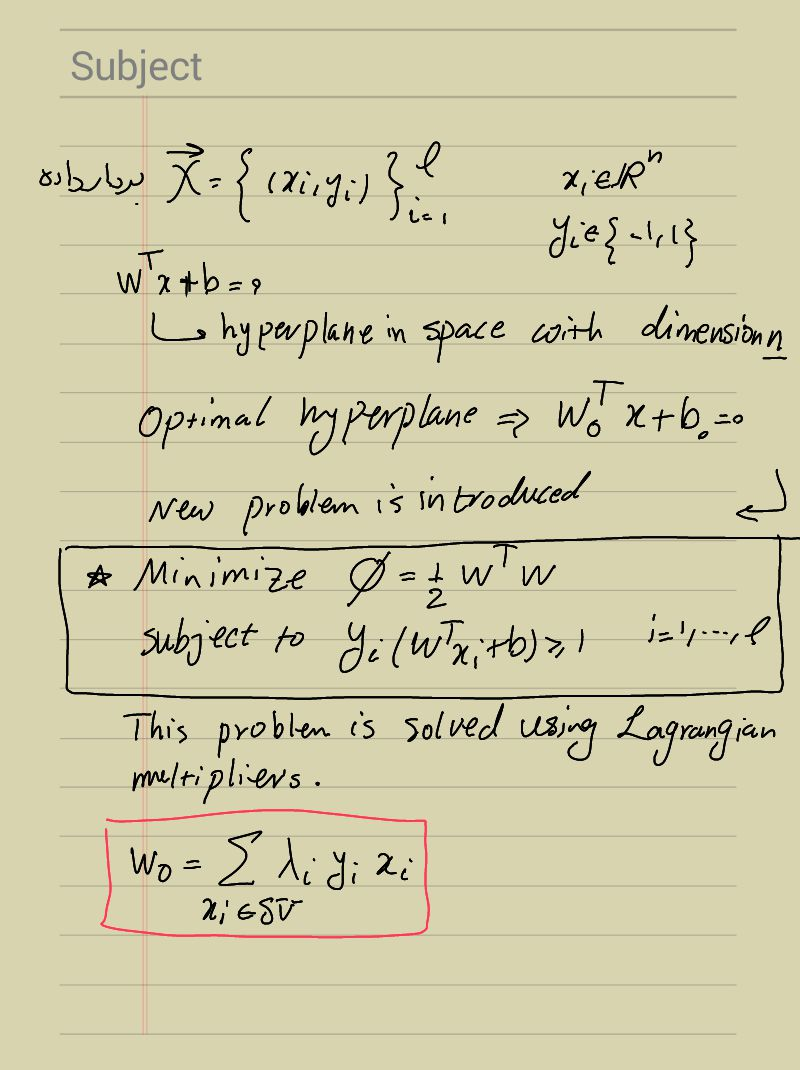 Subject
بردار داده X⃗ = { (xᵢ, yᵢ) }ˡᵢ₌₁ xᵢ ∈ ℝⁿ
yᵢ ∈ { -1, 1 }
wᵀx + b = 0
↳ hyperplane in space with dimension n
Optimal hyperplane ⇒ W₀ᵀ x + b₀ = 0
New problem is introduced ↵
☆ Minimize ∅ = 1/2 wᵀw
subject to yᵢ (wᵀxᵢ + b) ⩾ 1 i = 1, ..., ℓ
This problem is solved using Lagrangian
multipliers.
W₀ = ∑ λᵢ yᵢ xᵢ
xᵢ ∈ SV